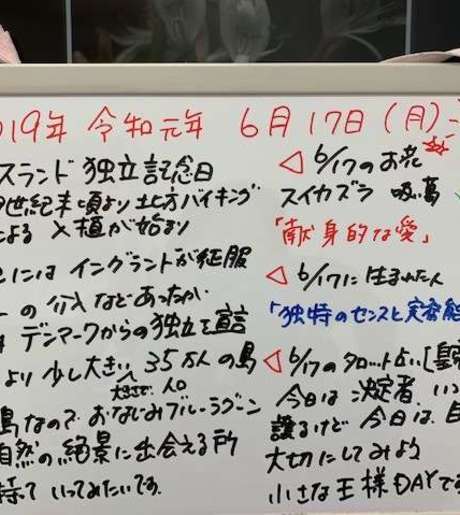 019年 令和元年 6月17日(月)
スランド 独立記念日
世紀末頃より 北方バイキング
よる 入植が始まり
にはイングランドが征服
ーの介入などあったが
デンマークからの独立を宣言
より少し大きい 35万人の島
大きさで 人口
島なので おなじみブルーラグーン
自然の絶景に出会える所
持って いってみたいです。
◁ 6/17のお花
スイカズラ 吸葛
「献身的な愛」
◁ 6/17に生まれた人
「独特のセンスと実務能
◁ 6/17のタロット占い[皇
今日は決定者 い
譲るけど 今日は
大切にしてみよう
小さな王様DAYです